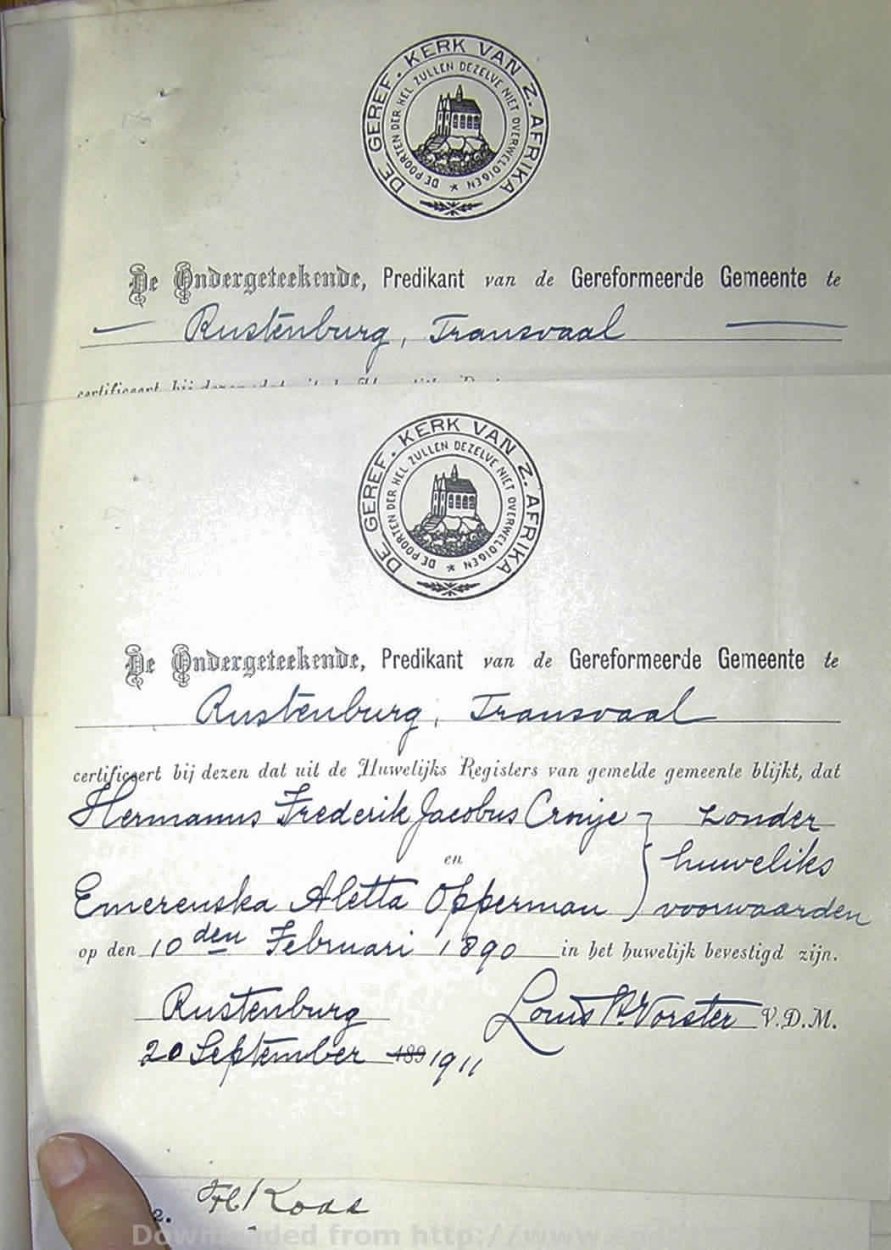 DE GEREF. KERK VAN Z. AFRIKA
DE POORTEN DER HEL ZULLEN DEZELVE NIET OVERWELDIGEN
De Ondergeteekende, Predikant van de Gereformeerde Gemeente te
Rustenburg, Transvaal
certificeert bij dezen dat uit de
DE GEREF. KERK VAN Z. AFRIKA
DE POORTEN DER HEL ZULLEN DEZELVE NIET OVERWELDIGEN
De Ondergeteekende, Predikant van de Gereformeerde Gemeente te
Rustenburg, Transvaal
certificeert bij dezen dat uit de Huwelijks Registers van gemelde gemeente blijkt, dat
Hermanus Frederik Jacobus Cronje } zonder
en huweliks
Emerenska Aletta Opperman voorwaarden
op den 10den Februari 1890 in het huwelijk bevestigd zijn.
Rustenburg Louis P. Vorster V.D.M.
20 September 189 1911
2.
Downloaded from http://www.